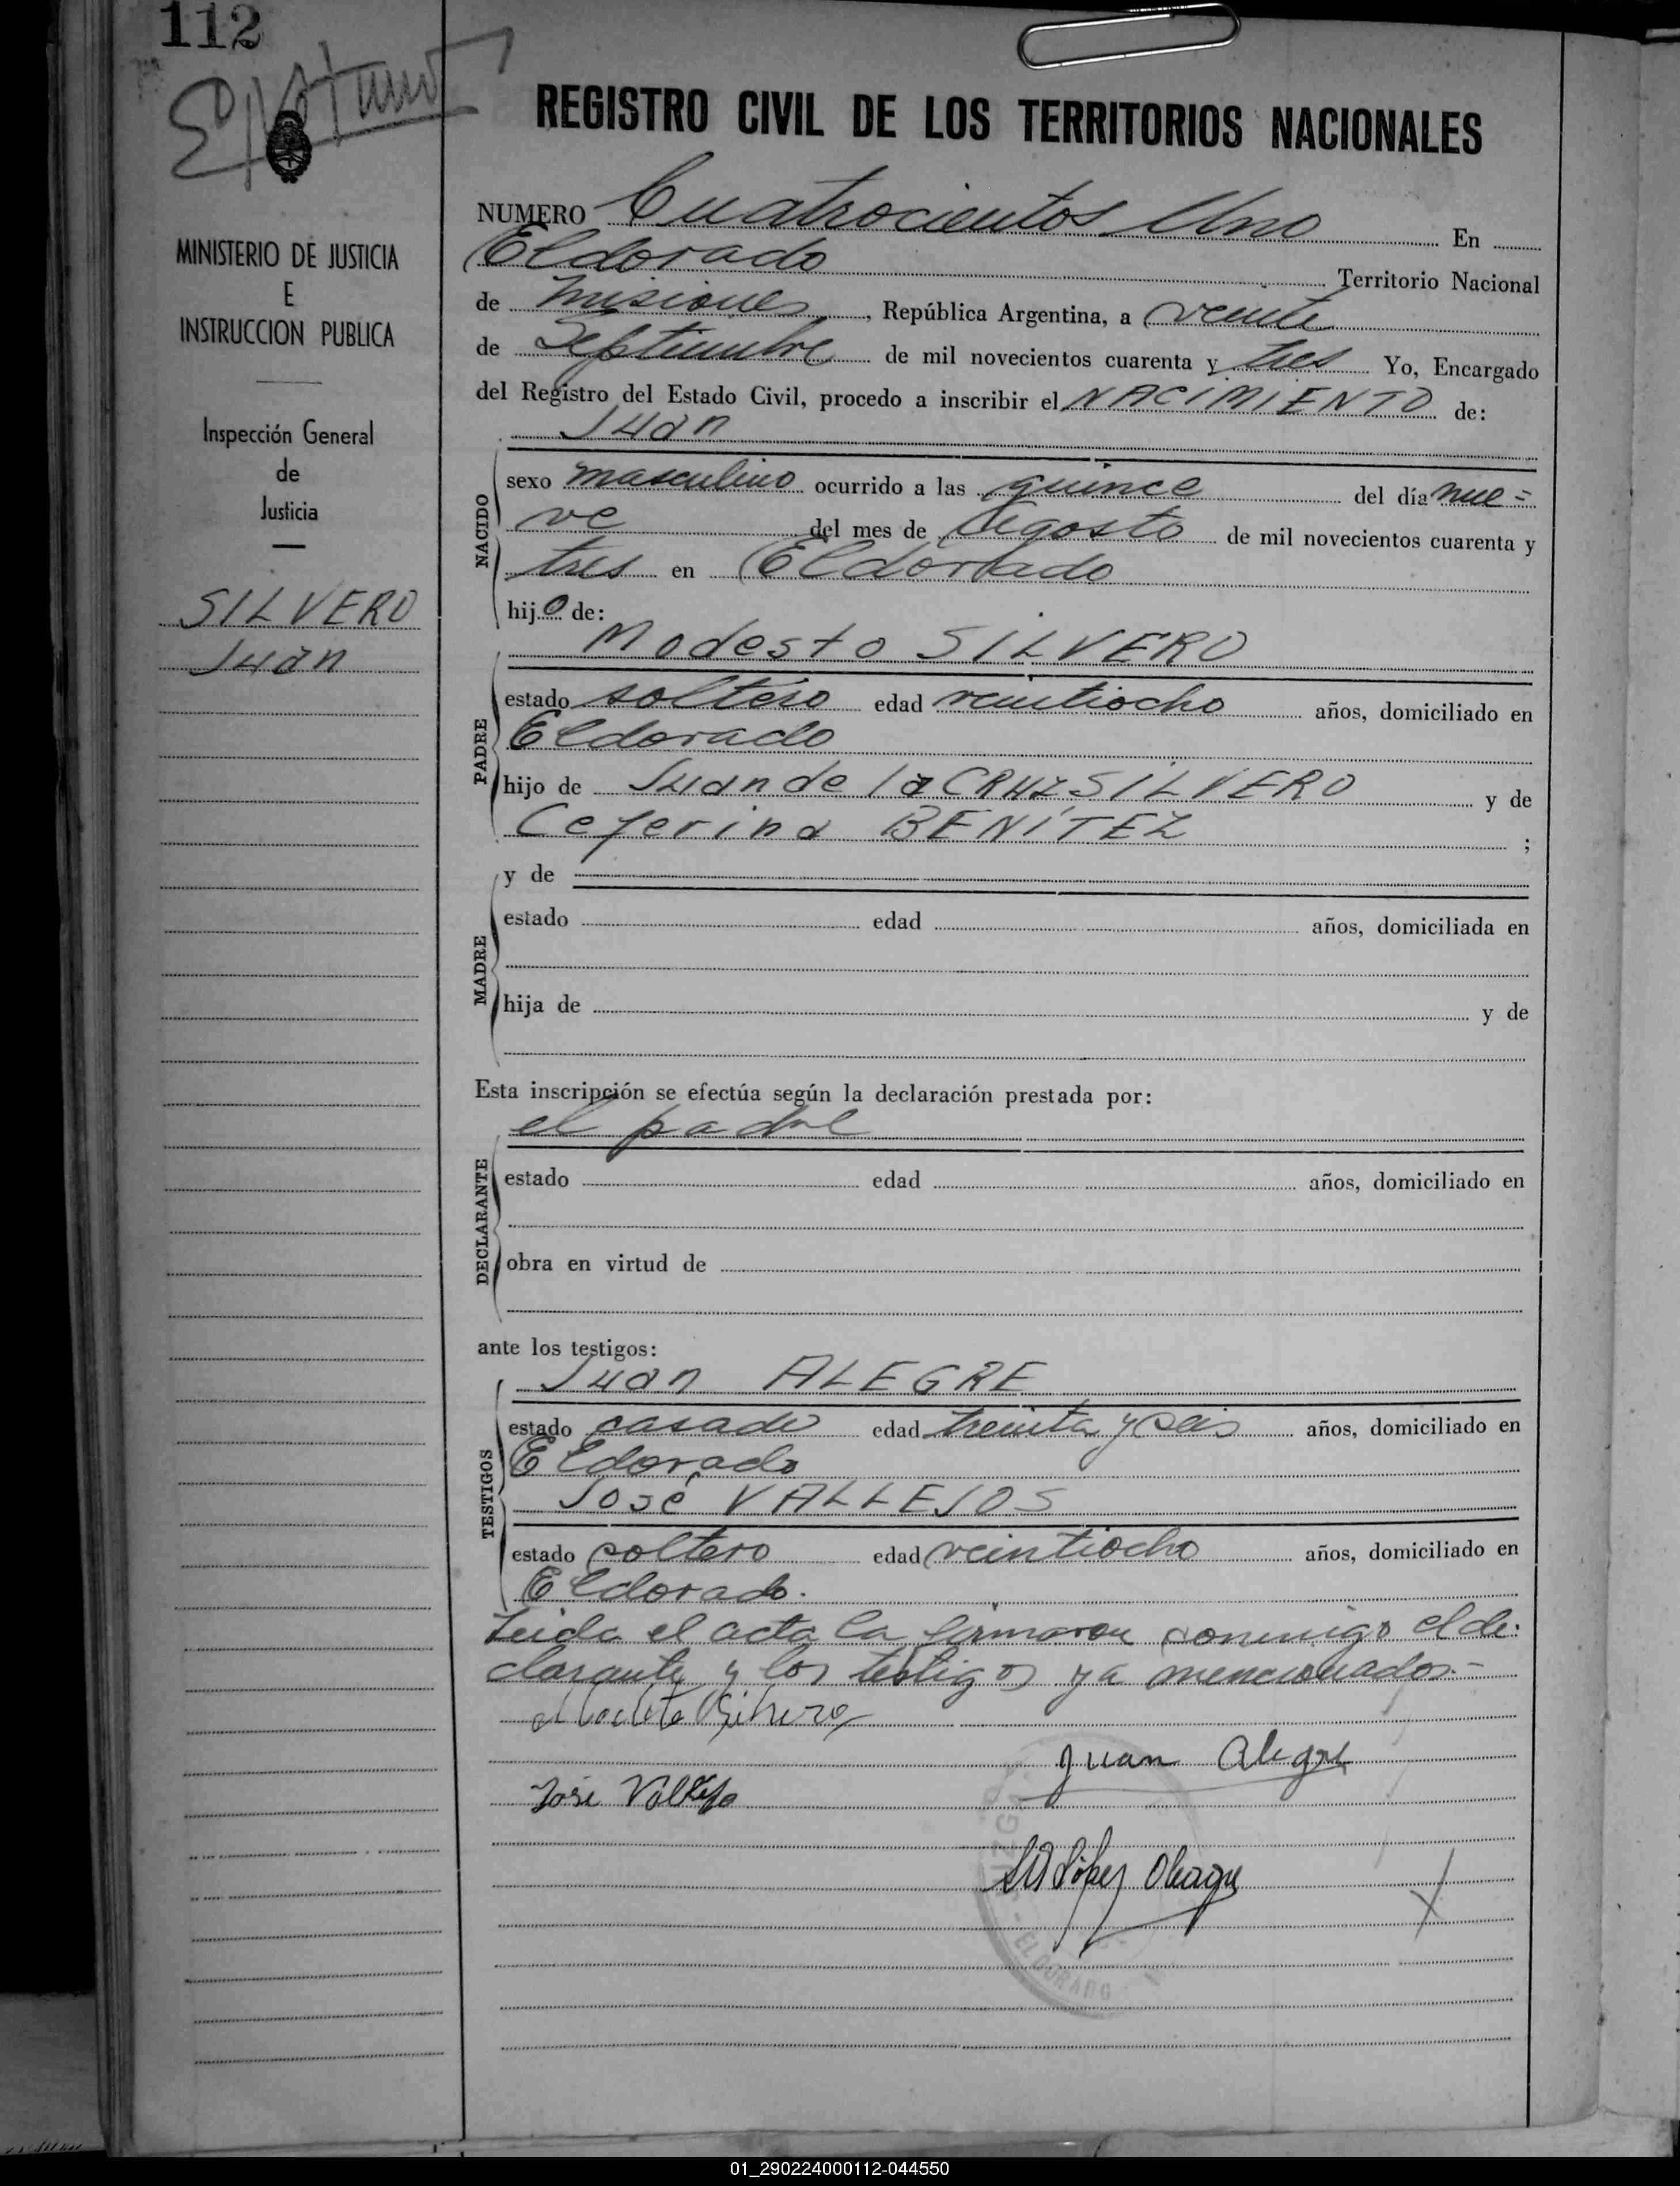 112
REGISTRO CIVIL DE LOS TERRITORIOS NACIONALES
MINISTERIO DE JUSTICIA
E
INSTRUCCION PUBLICA
Inspección General
de
Justicia
SILVERO
Juan
NUMERO Cuatrocientos Uno En
Eldorado Territorio Nacional
de Misiones, República Argentina, a veinte
de Septiembre de mil novecientos cuarenta y tres Yo, Encargado
del Registro del Estado Civil, procedo a inscribir el NACIMIENTO de:
Juan
NACIDO
sexo masculino ocurrido a las quince del día nue=
ve del mes de Agosto de mil novecientos cuarenta y
tres en Eldorado
hijo de:
Modesto SILVERO
PADRE
estado soltero edad veintiocho años, domiciliado en
Eldorado
hijo de Juan de la CRUZ SILVERO y de
Ceferina BENÍTEZ ;
MADRE
y de
estado edad años, domiciliada en
hija de y de
Esta inscripción se efectúa según la declaración prestada por:
el padre
DECLARANTE
estado edad años, domiciliado en
obra en virtud de
ante los testigos:
TESTIGOS
Juan ALEGRE
estado casado edad treinta y seis años, domiciliado en
Eldorado
José VALLEJOS
estado soltero edad veintiocho años, domiciliado en
Eldorado.
Leida el acta la firmaron conmigo el de-
clarante y los testigos ya mencionados.-
Juan Alegre
José Vallejo
López
ELDORADO
01_290224000112-044550